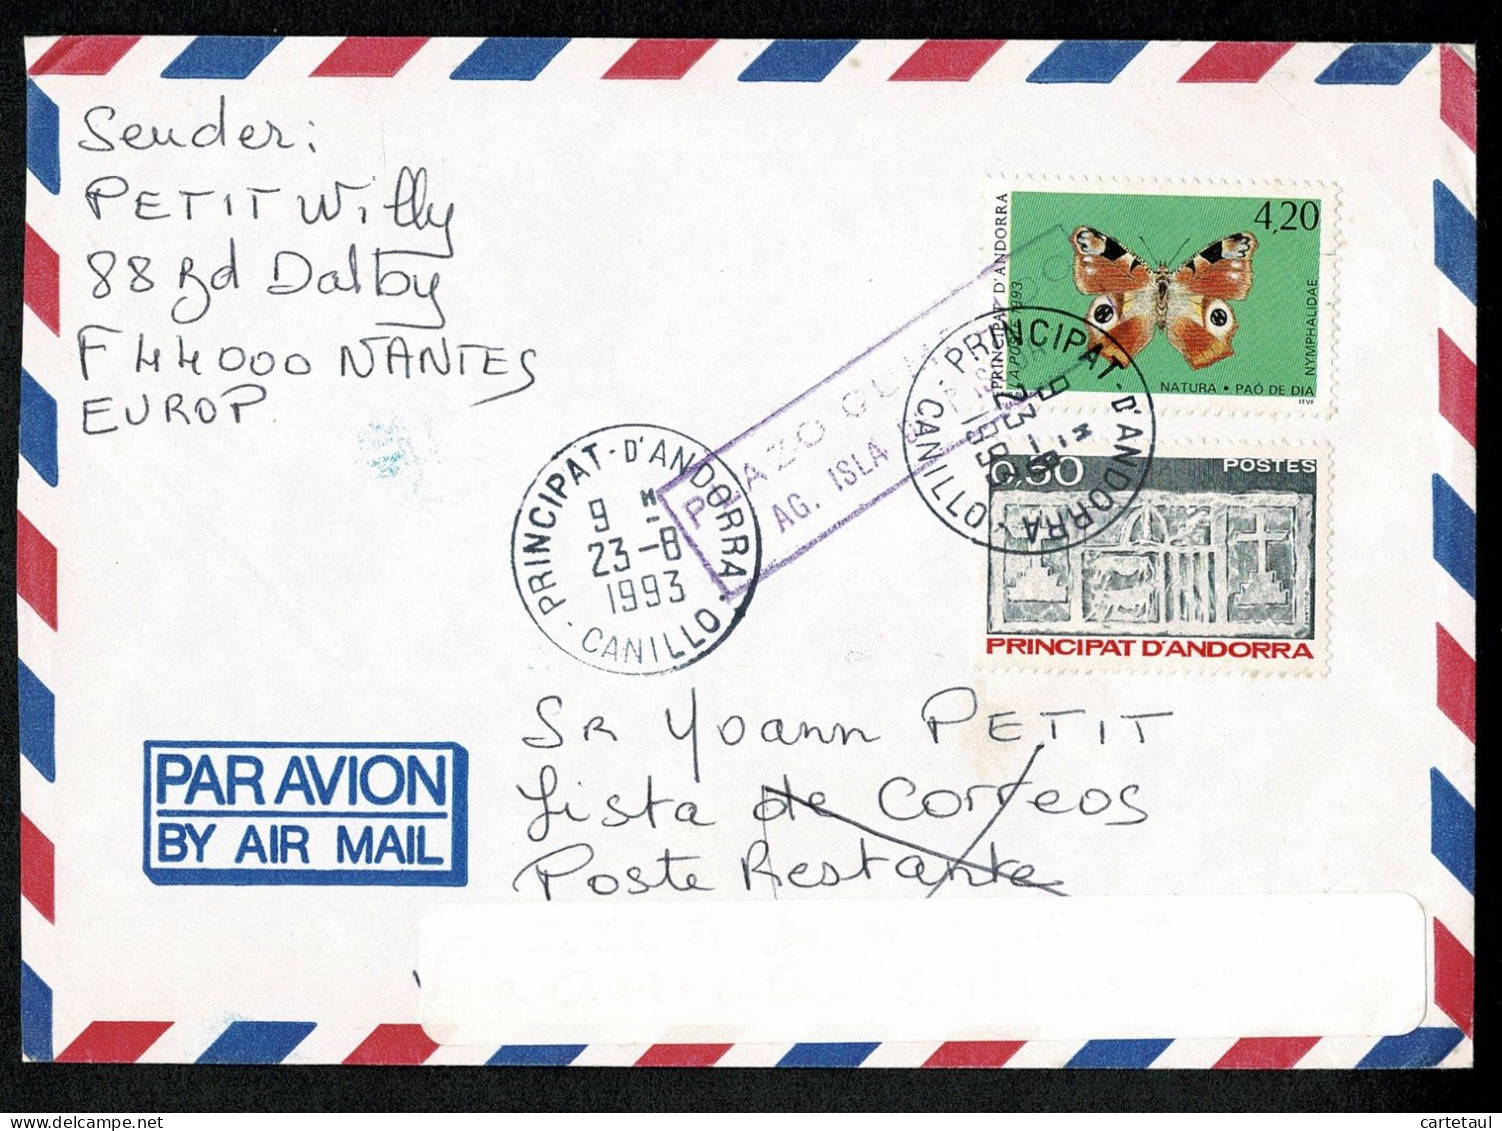 Sender:
PETIT Willy
88 Bd Dalby
F 44000 NANTES
EUROP
PRINCIPAT D'ANDORRA
LA POSTE 1993
4,20
NYMPHALIDAE
NATURA • PAÓ DE DIA
ITVF
PLAZO
AG. ISLA
PRINCIPAT - D'ANDORRA
9 M
23-8
1993
- CANILLO -
PRINCIPAT - D'ANDORRA
9 M
23-8
1993
CANILLO
POSTES
PRINCIPAT D'ANDORRA
SR Yoann PETIT
Lista de Correos
Poste Restante
PAR AVION
BY AIR MAIL
cartetaul